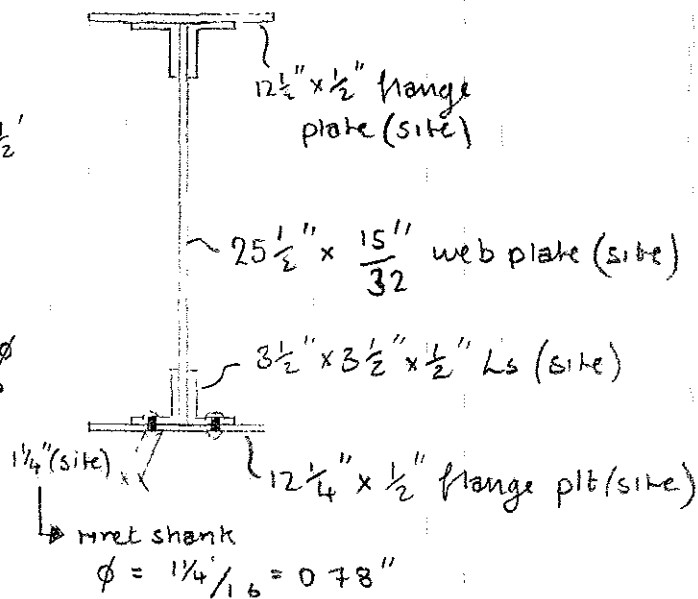 12 1/2" x 1/2" flange
plate (site)
1/2'
25 1/2" x 15/32" web plate (site)
φ
3 1/2" x 3 1/2" x 1/2" Ls (site)
1 1/4" (site)
12 1/4" x 1/2" flange plt (site)
rivet shank
φ = 1 1/4'/1 6 = 0 78"